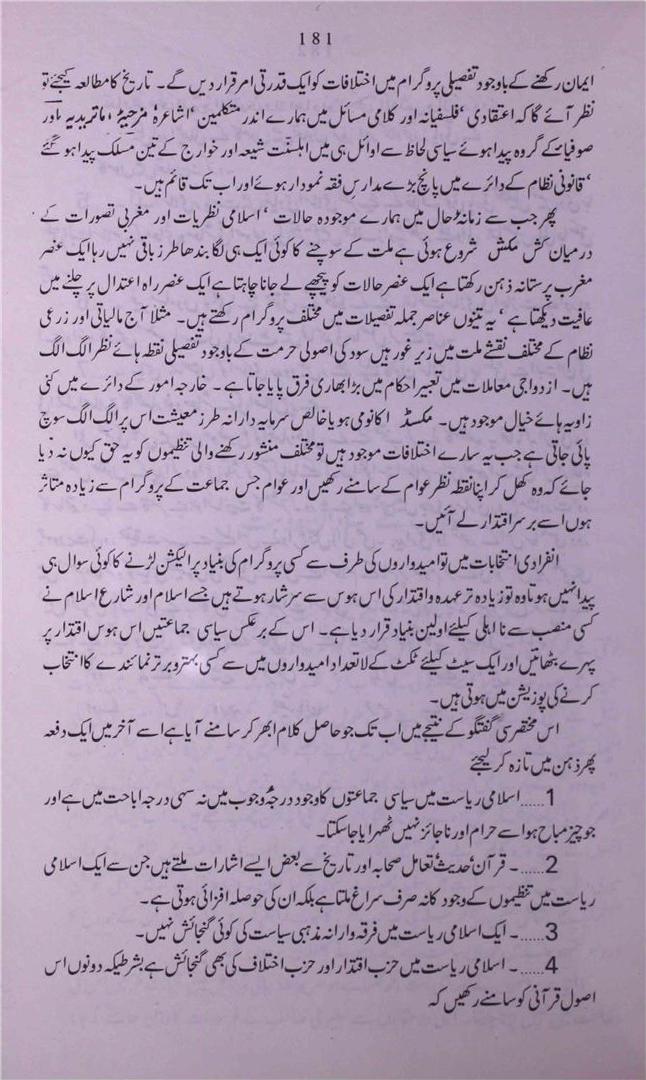 181
ایمان رکھنے کے باوجود تفصیلی پروگرام میں اختلافات کو ایک قدرتی امر قرار دیں گے۔ تاریخ کا مطالعہ کیجئے تو
نظر آئے گا کہ اعتقادی ‘ فلسفیانہ اور کلامی مسائل میں ہمارے اندر متکلمین ‘ اشاعرہ‘ مرجیۂ ‘ ماتریدیہ اور
صوفیاء کے گروہ پیدا ہوئے سیاسی لحاظ سے اوائل ہی میں اہلسنّت شیعہ اور خوارج کے تین مسلک پیدا ہو گئے
‘ قانونی نظام کے دائرے میں پانچ بڑے مدارس فقہ نمودار ہوئے اور اب تک قائم ہیں۔
پھر جب سے زمانہ ٔحال میں ہمارے موجودہ حالات ‘ اسلامی نظریات اور مغربی تصورات کے
درمیان کش مکش شروع ہوئی ہے ملت کے سوچنے کا کوئی ایک ہی لگا بندھا طرز باقی نہیں رہا ایک عنصر
مغرب پرستانہ ذہن رکھتا ہے ایک عنصر حالات کو پیچھے لے جانا چاہتا ہے ایک عنصر راہ اعتدال پر چلنے میں
عافیت دیکھتا ہے ‘ یہ تینوں عناصر جملہ تفصیلات میں مختلف پروگرام رکھتے ہیں۔ مثلاً آج مالیاتی اور زرعی
نظام کے مختلف نقشے ملت میں زیر غور ہیں سود کی اصولی حرمت کے باوجود تفصیلی نقطہ ہائے نظر الگ الگ
ہیں۔ ازدواجی معاملات میں تعبیر احکام میں بڑا بھاری فرق پایا جاتا ہے۔ خارجہ امور کے دائرے میں کئی
زاویہ ہائے خیال موجود ہیں۔ مکسڈ اکانومی ہو یا خالص سرمایہ دارانہ طرز معیشت اس پر الگ الگ سوچ
پائی جاتی ہے جب یہ سارے اختلافات موجود ہیں تو مختلف منشور رکھنے والی تنظیموں کو یہ حق کیوں نہ دیا
جائے کہ وہ کھل کر اپنا نقطہ نظر عوام کے سامنے رکھیں اور عوام جس جماعت کے پروگرام سے زیادہ متاثر
ہوں اسے برسر اقتدار لے آئیں۔
انفرادی انتخابات میں تو امیدواروں کی طرف سے کسی پروگرام کی بنیاد پر الیکشن لڑنے کا کوئی سوال ہی
پیدا نہیں ہوتا وہ تو زیادہ تر عہدہ واقتدار کی اس ہوس سے سرشار ہوتے ہیں جسے اسلام اور شارع اسلام نے
کسی منصب سے نااہلی کیلئے اولین بنیاد قرار دیا ہے۔ اس کے برعکس سیاسی جماعتیں اس ہوس اقتدار پر
پہرے بٹھاتیں اور ایک سیٹ کیلئے ٹکٹ کے لاتعداد امیدواروں میں سے کسی بہتر و برتر نمائندے کا انتخاب
کرنے کی پوزیشن میں ہوتی ہیں۔
اس مختصر سی گفتگو کے نتیجے میں اب تک جو حاصل کلام ابھر کر سامنے آیا ہے اسے آخر میں ایک دفعہ
پھر ذہن میں تازہ کر لیجئے
1...... اسلامی ریاست میں سیاسی جماعتوں کا وجود درجۂ وجوب میں نہ سہی درجہ اباحت میں ہے اور
جو چیز مباح ہو اسے حرام اور ناجائز نہیں ٹھہرایا جاسکتا۔
2......۔ قرآن‘ حدیث‘ تعامل صحابہ اور تاریخ سے بعض ایسے اشارات ملتے ہیں جن سے ایک اسلامی
ریاست میں تنظیموں کے وجود کا نہ صرف سراغ ملتا ہے بلکہ ان کی حوصلہ افزائی ہوتی ہے۔
3......۔ ایک اسلامی ریاست میں فرقہ وارانہ مذہبی سیاست کی کوئی گنجائش نہیں۔
4......۔ اسلامی ریاست میں حزب اقتدار اور حزب اختلاف کی بھی گنجائش ہے بشرطیکہ دونوں اس
اصول قرآنی کو سامنے رکھیں کہ